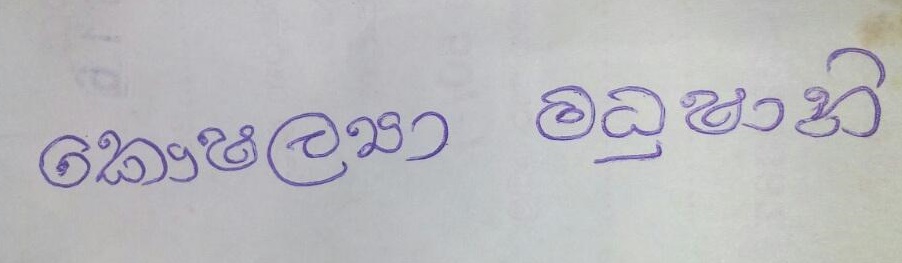 කෞෂල්‍යා මධුෂානි